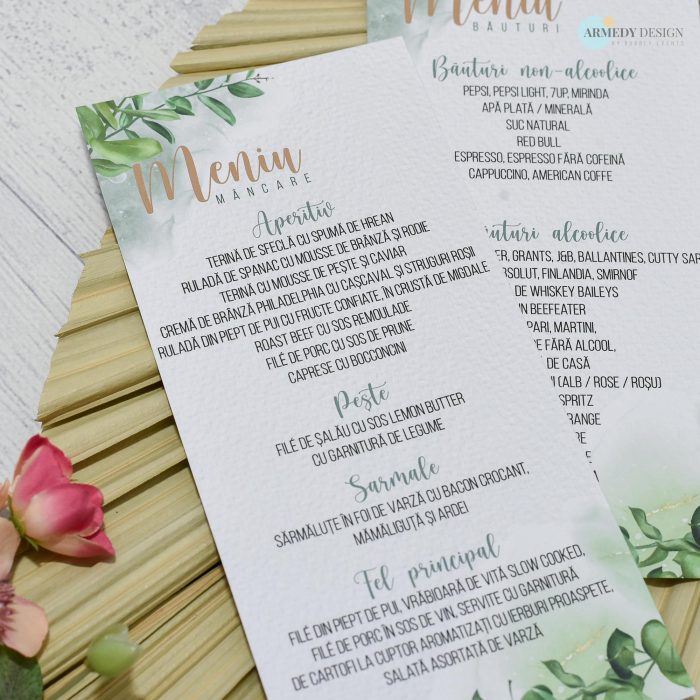 Meniu
MÂNCARE
Aperitiv
TERINĂ DE SFECLĂ CU SPUMĂ DE HREAN
RULADĂ DE SPANAC CU MOUSSE DE BRÂNZĂ ȘI RODIE
TERINĂ CU MOUSSE DE PEȘTE ȘI CAVIAR
CREMĂ DE BRÂNZĂ PHILADELPHIA CU CAȘCAVAL ȘI STRUGURI ROȘII
RULADĂ DIN PIEPT DE PUI CU FRUCTE CONFIATE, ÎN CRUSTĂ DE MIGDALE
ROAST BEEF CU SOS REMOULADE
FILÉ DE PORC CU SOS DE PRUNE
CAPRESE CU BOCCONCINI
Pește
FILÉ DE ȘALĂU CU SOS LEMON BUTTER
CU GARNITURĂ DE LEGUME
Sarmale
SĂRMĂLUȚE ÎN FOI DE VARZĂ CU BACON CROCANT,
MĂMĂLIGUȚĂ ȘI ARDEI
Fel principal
FILÉ DIN PIEPT DE PUI, VRĂBIOARĂ DE VITĂ SLOW COOKED,
FILÉ DE PORC ÎN SOS DE VIN, SERVITE CU GARNITURĂ
DE CARTOFI LA CUPTOR AROMATIZAȚI CU IERBURI PROASPETE,
SALATĂ ASORTATĂ DE VARZĂ
Meniu
BĂUTURI
Băuturi non-alcoolice
PEPSI, PEPSI LIGHT, 7UP, MIRINDA
APĂ PLATĂ / MINERALĂ
SUC NATURAL
RED BULL
ESPRESSO, ESPRESSO FĂRĂ COFEINĂ
CAPPUCCINO, AMERICAN COFFE
ăuturi alcoolice
ER, GRANTS, J&B, BALLANTINES, CUTTY SAR
BSOLUT, FINLANDIA, SMIRNOF
DE WHISKEY BAILEYS
IN BEEFEATER
PARI, MARTINI,
E FĂRĂ ALCOOL,
DE CASĂ
I (ALB / ROSE / ROȘU)
SPRITZ
RANGE
RE
ARMEDY DESIGN
BY BUBBLY EVENTS